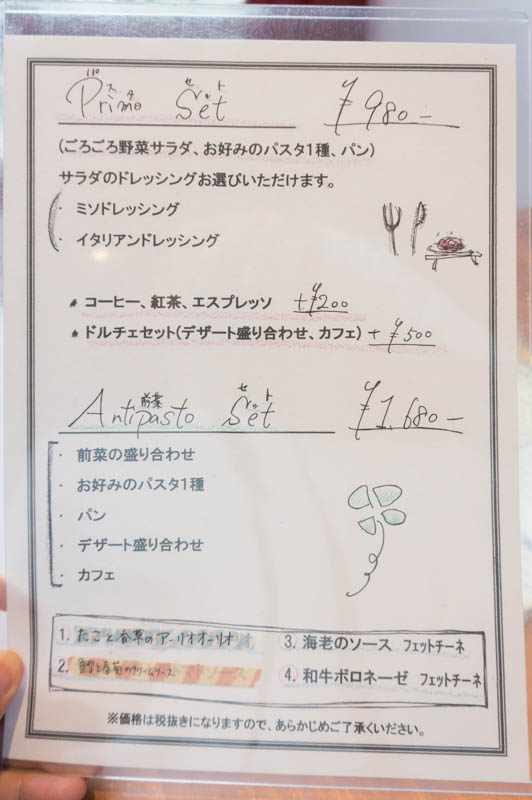 パスタ セット
Primo Set ¥980-
(ごろごろ野菜サラダ、お好みのパスタ1種、パン)
サラダのドレッシングお選びいただけます。
・ ミソドレッシング
・ イタリアンドレッシング
コーヒー、紅茶、エスプレッソ +¥200
ドルチェセット(デザート盛り合わせ、カフェ) +¥500
前菜 セット
Antipasto Set ¥1.680-
・ 前菜の盛り合わせ
・ お好みのパスタ1種
・ パン
・ デザート盛り合わせ
・ カフェ
1. たこと香草のアーリオオーリオ
2. と春菊のクリームソース
3. 海老のソース フェットチーネ
4. 和牛ボロネーゼ フェットチーネ
※価格は税抜きになりますので、あらかじめご了承ください。